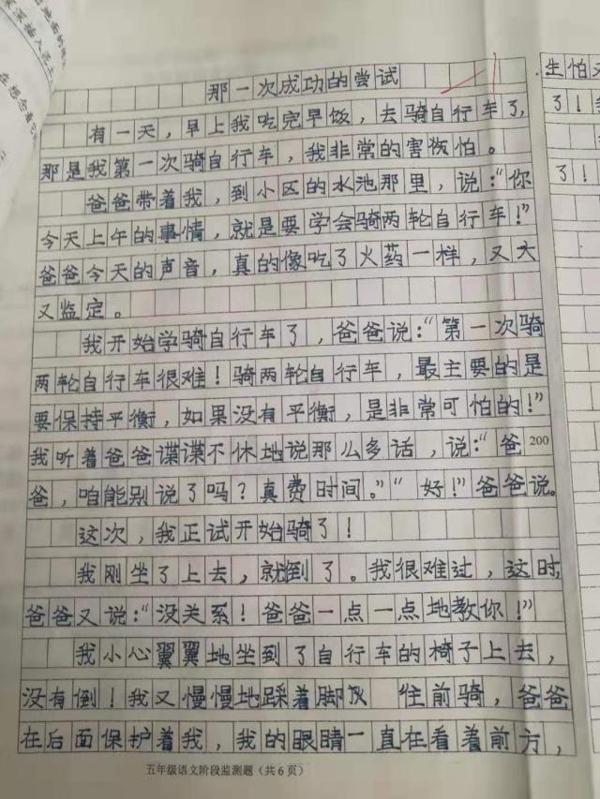 那一次成功的尝试
有一天，早上我吃完早饭，去骑自行车了，
那是我第一次骑自行车，我非常的害怕。
爸爸带着我，到小区的水池那里，说：“你
今天上午的事情，就是要学会骑两轮自行车！”
爸爸今天的声音，真的像吃了火药一样，又大
又监定。
我开始学骑自行车了，爸爸说：“第一次骑
两轮自行车很难！骑两轮自行车，最主要的是
要保持平衡，如果没有平衡，是非常可怕的！”
我听着爸爸谍谍不休地说那么多话，说：“爸
200
爸，咱能别说了吗？真费时间。”“好！”爸爸说。
这次，我正试开始骑了！
我刚坐了上去，就到了。我很难过，这时，
爸爸又说：“没关系！爸爸一点一点地教你！”
我小心翼翼地坐到了自行车的椅子上去，
没有倒！我又慢慢地踩着脚 往前骑，爸爸
在后面保护着我，我的眼睛一直在看着前方，
五年级语文阶段监测题（共6页）
生怕又
了！
了！